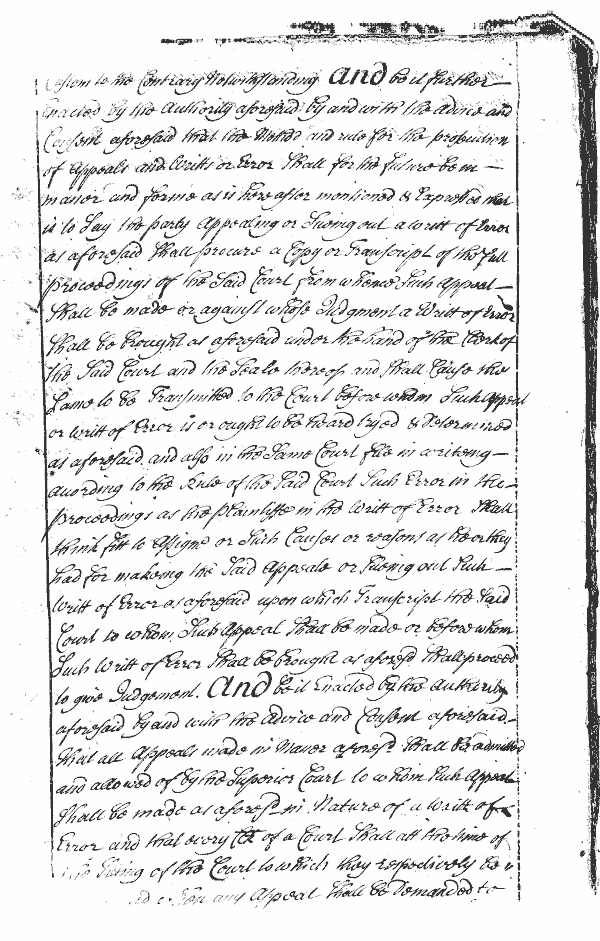 Custom to the Contrary Notwithstanding And be it further
Enacted by the Authority aforesaid by and with the Advice and
Consent aforesaid that the Method and rule for the prosecution
of Appeals and Writts of Error Shall for the future be in
maner and forme as is hereafter mentioned & Expressed that
is to Say the party Appealing or Sueing out a writt of Error
as aforesaid Shall procure a Copy or Transcript of the full
proceedings of the Said Court from whence Such Appeal
Shall be made or against whose Judgment a Writt of Error
Shall be brought as aforesaid under the hand of the Clerk of
the Said Court and the Seale thereof and Shall Cause the
Same to be Transmitted to the Court before whom Such Appeal
or writt of Error is or ought to be heard tryed & Determined
as aforesaid and also in the Same Court file in writeing
according to the Rule of the Said Court Such Error in the
proceedings as the plaintiffe in the Writt of Error Shall
think fitt to Assigne or Such Causes or reasons as he or they
had for makeing the Said Appeale or Sueing out Such
Writt of Error as aforesaid upon which Transcript the Said
Court to whom Such Appeal Shall be made or before whom
Such Writt of Error Shall be brought as aforesd Shall proceed
to give Judgement. And be it Enacted by the Authority
aforesaid by and with the Advice and Consent aforesaid
that all Appeals made in Maner aforesd Shall be admitted
and allowed of by the Superior Court to whom Such Appeal
Shall be made as aforesd in Nature of a writt of
Error and that every Clk of a Court Shall att the time of
the Sitting of the Court to which they respectively be
any Appeal Shall be Demanded to